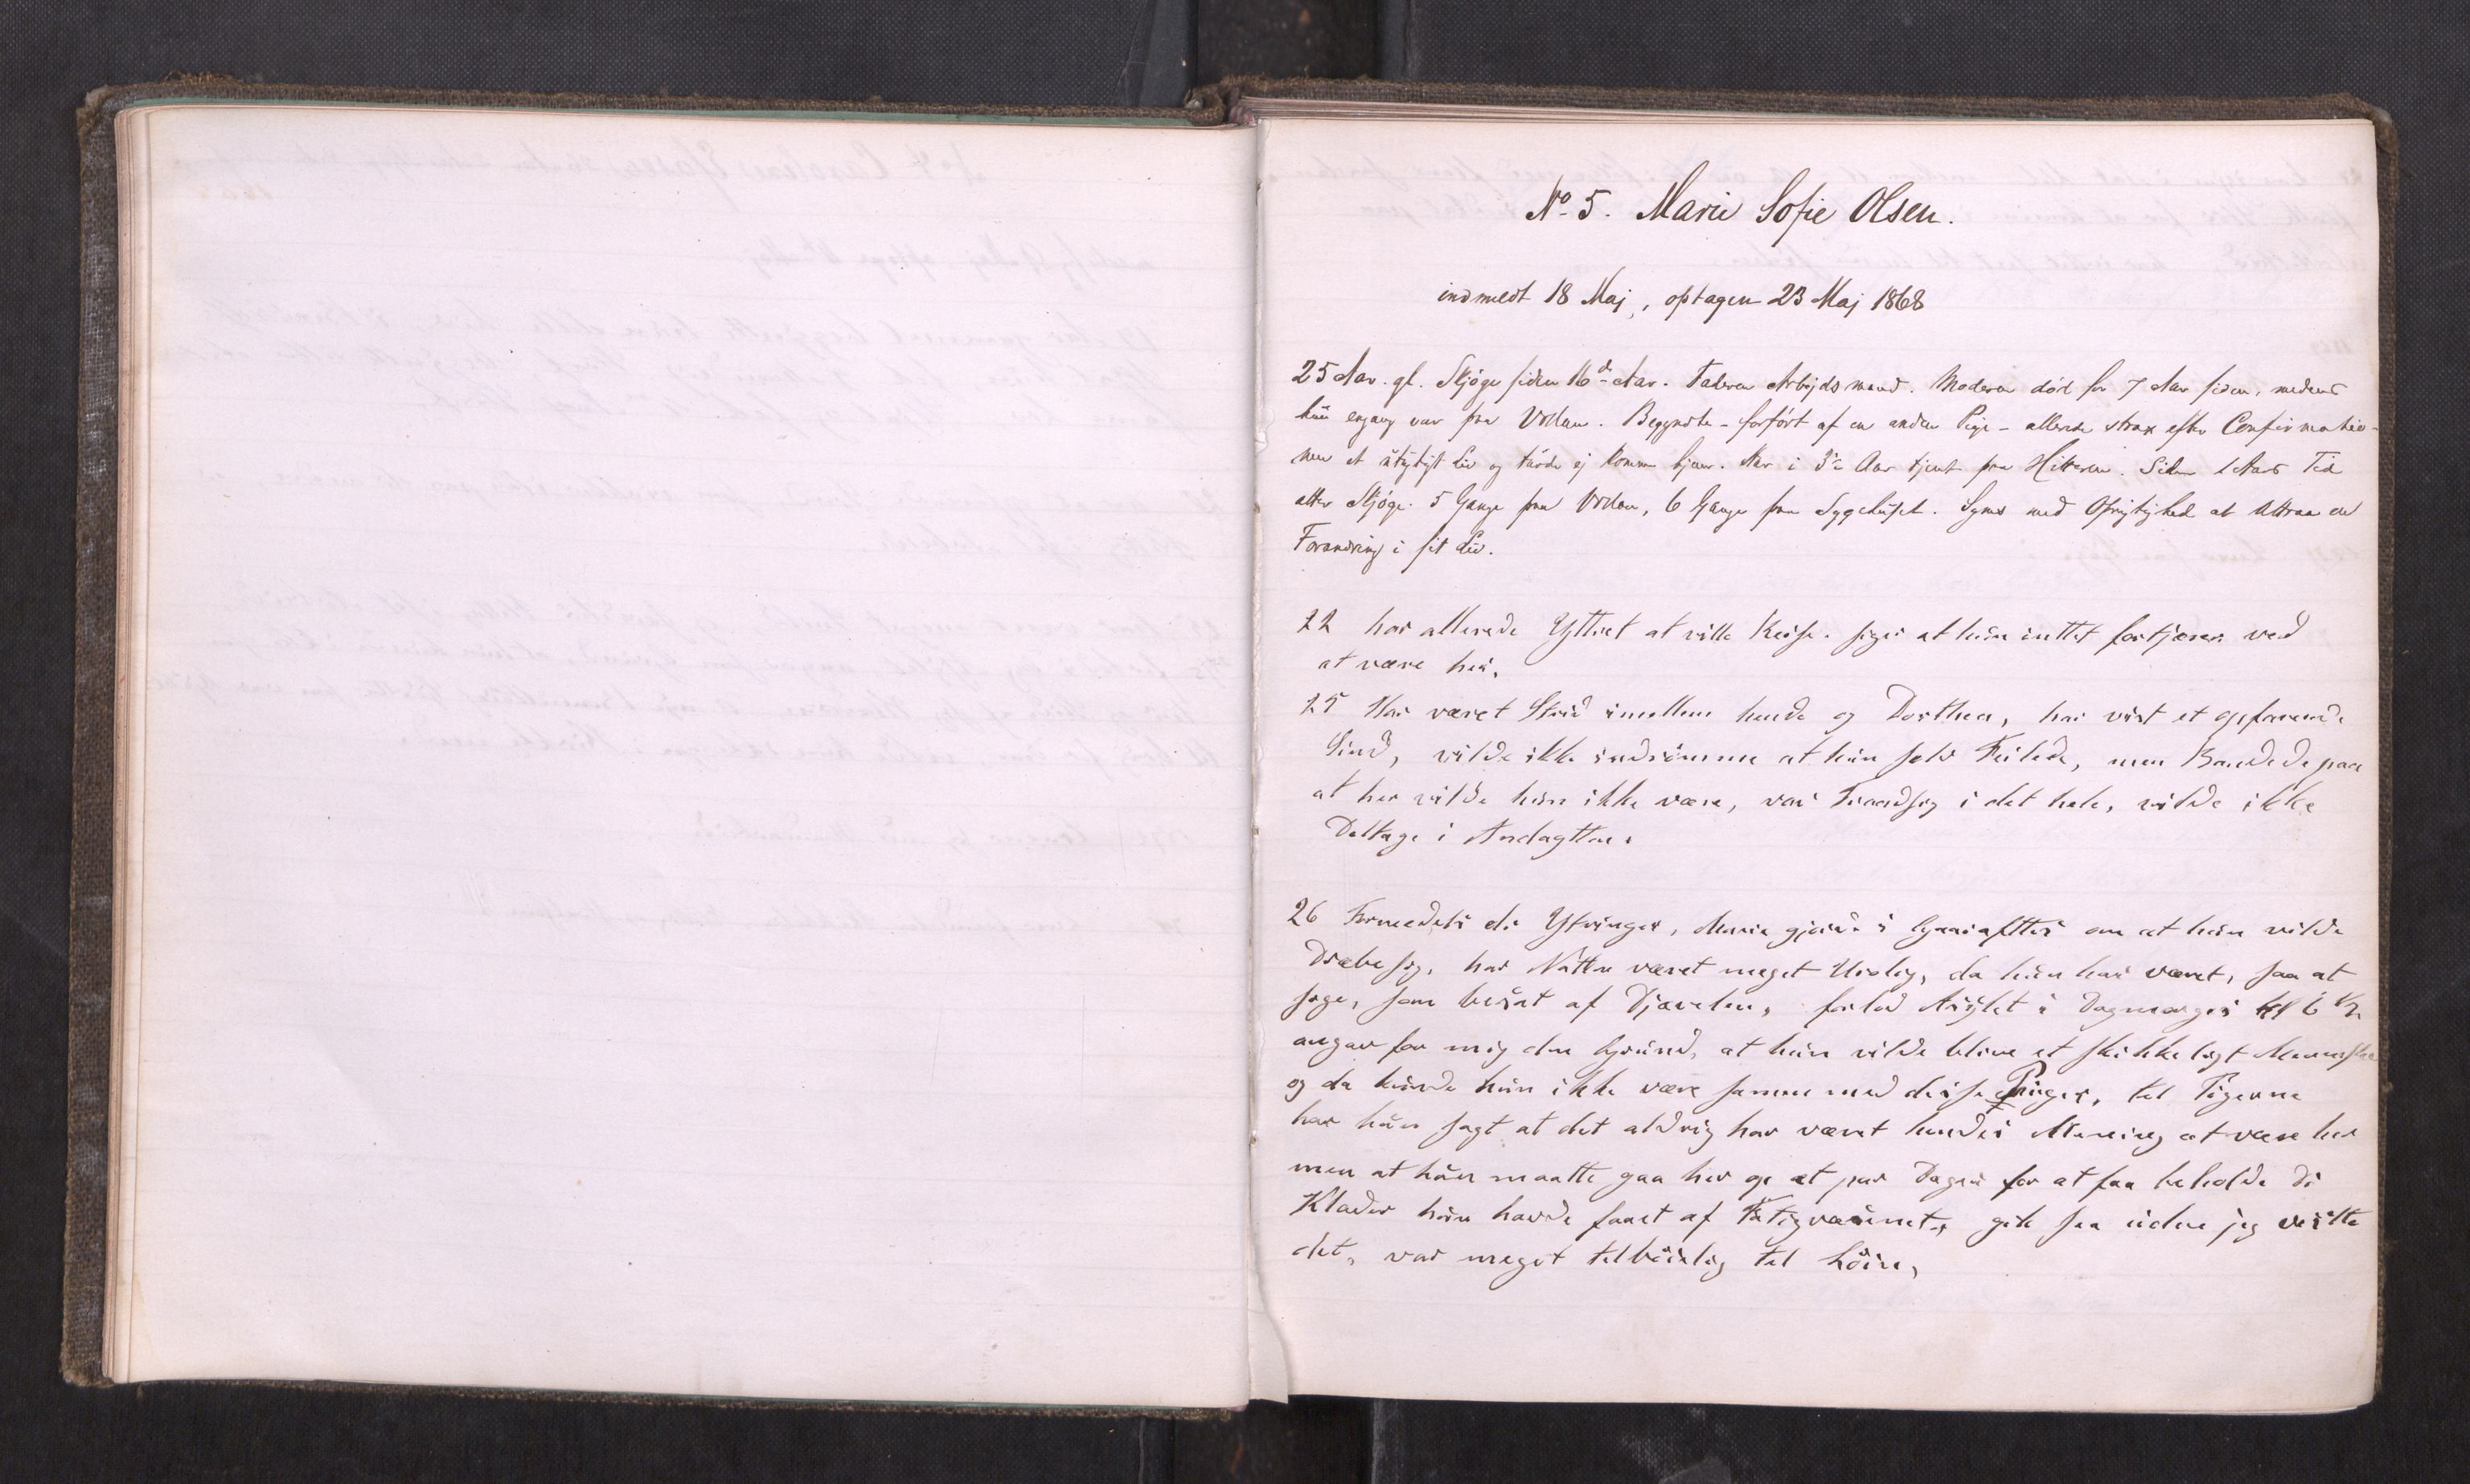 No. 5. Marie Sofie Olsen.
indmeldt 18 Maj, optagen 23 Maj 1868
25 Aar. gl. Skjøge siden 16de Aar. Faderen Arbejdsmand. Moderen död for 7 Aar siden, medens
hun engang var paa Volden. Begyndte - forfört af en anden Pige - allerede strax efter Confirmatio-
nen et utugtigt Liv og turde ej komme hjem. Har i 3 Aar tjent paa Hitteren. Siden 1 Aars Tid
atter Skjøge. 5 Gange paa Volden, 6 Gange paa Sygehuset. Synes med Oprigtighed at attraa en
Forandring i sit Liv.
22 har allerede Yttret at ville Reise. siger at hun inttet fortjæner ved
at være her.
25 Har været Strid imellem hende og Dorthea, har vist et opfarende
Sind, vilde ikke indrömme at hun selv Feilede, men Bandede paa
at her vilde hun ikke være, var Traadsig i det hele, vilde ikke
Deltage i Andagtten.
26 Formedels de Ytringer, Marie gjorde i Gaarafttes om at hun vilde
Dræbe sig, har Natten været meget Urolig, da hun har været, saa at
sige, som besat af Djævelen, forlod Asylet i Dagmorges kl 6 1/2
angav for mig den Grund, at hun vilde blive et skikkeligt Menneske
og da kunde hun ikke være samme med disse Piger, til Pigerne
har hun sagt at det aldrig har været hendes Mening at være her
men at hun maatte gaa her op et par Dage for at faa beholde de
Klæder hun havde faaet af Fatigvæsenet, gik saa uden jeg viste
det, var meget tilböielig til Löin,